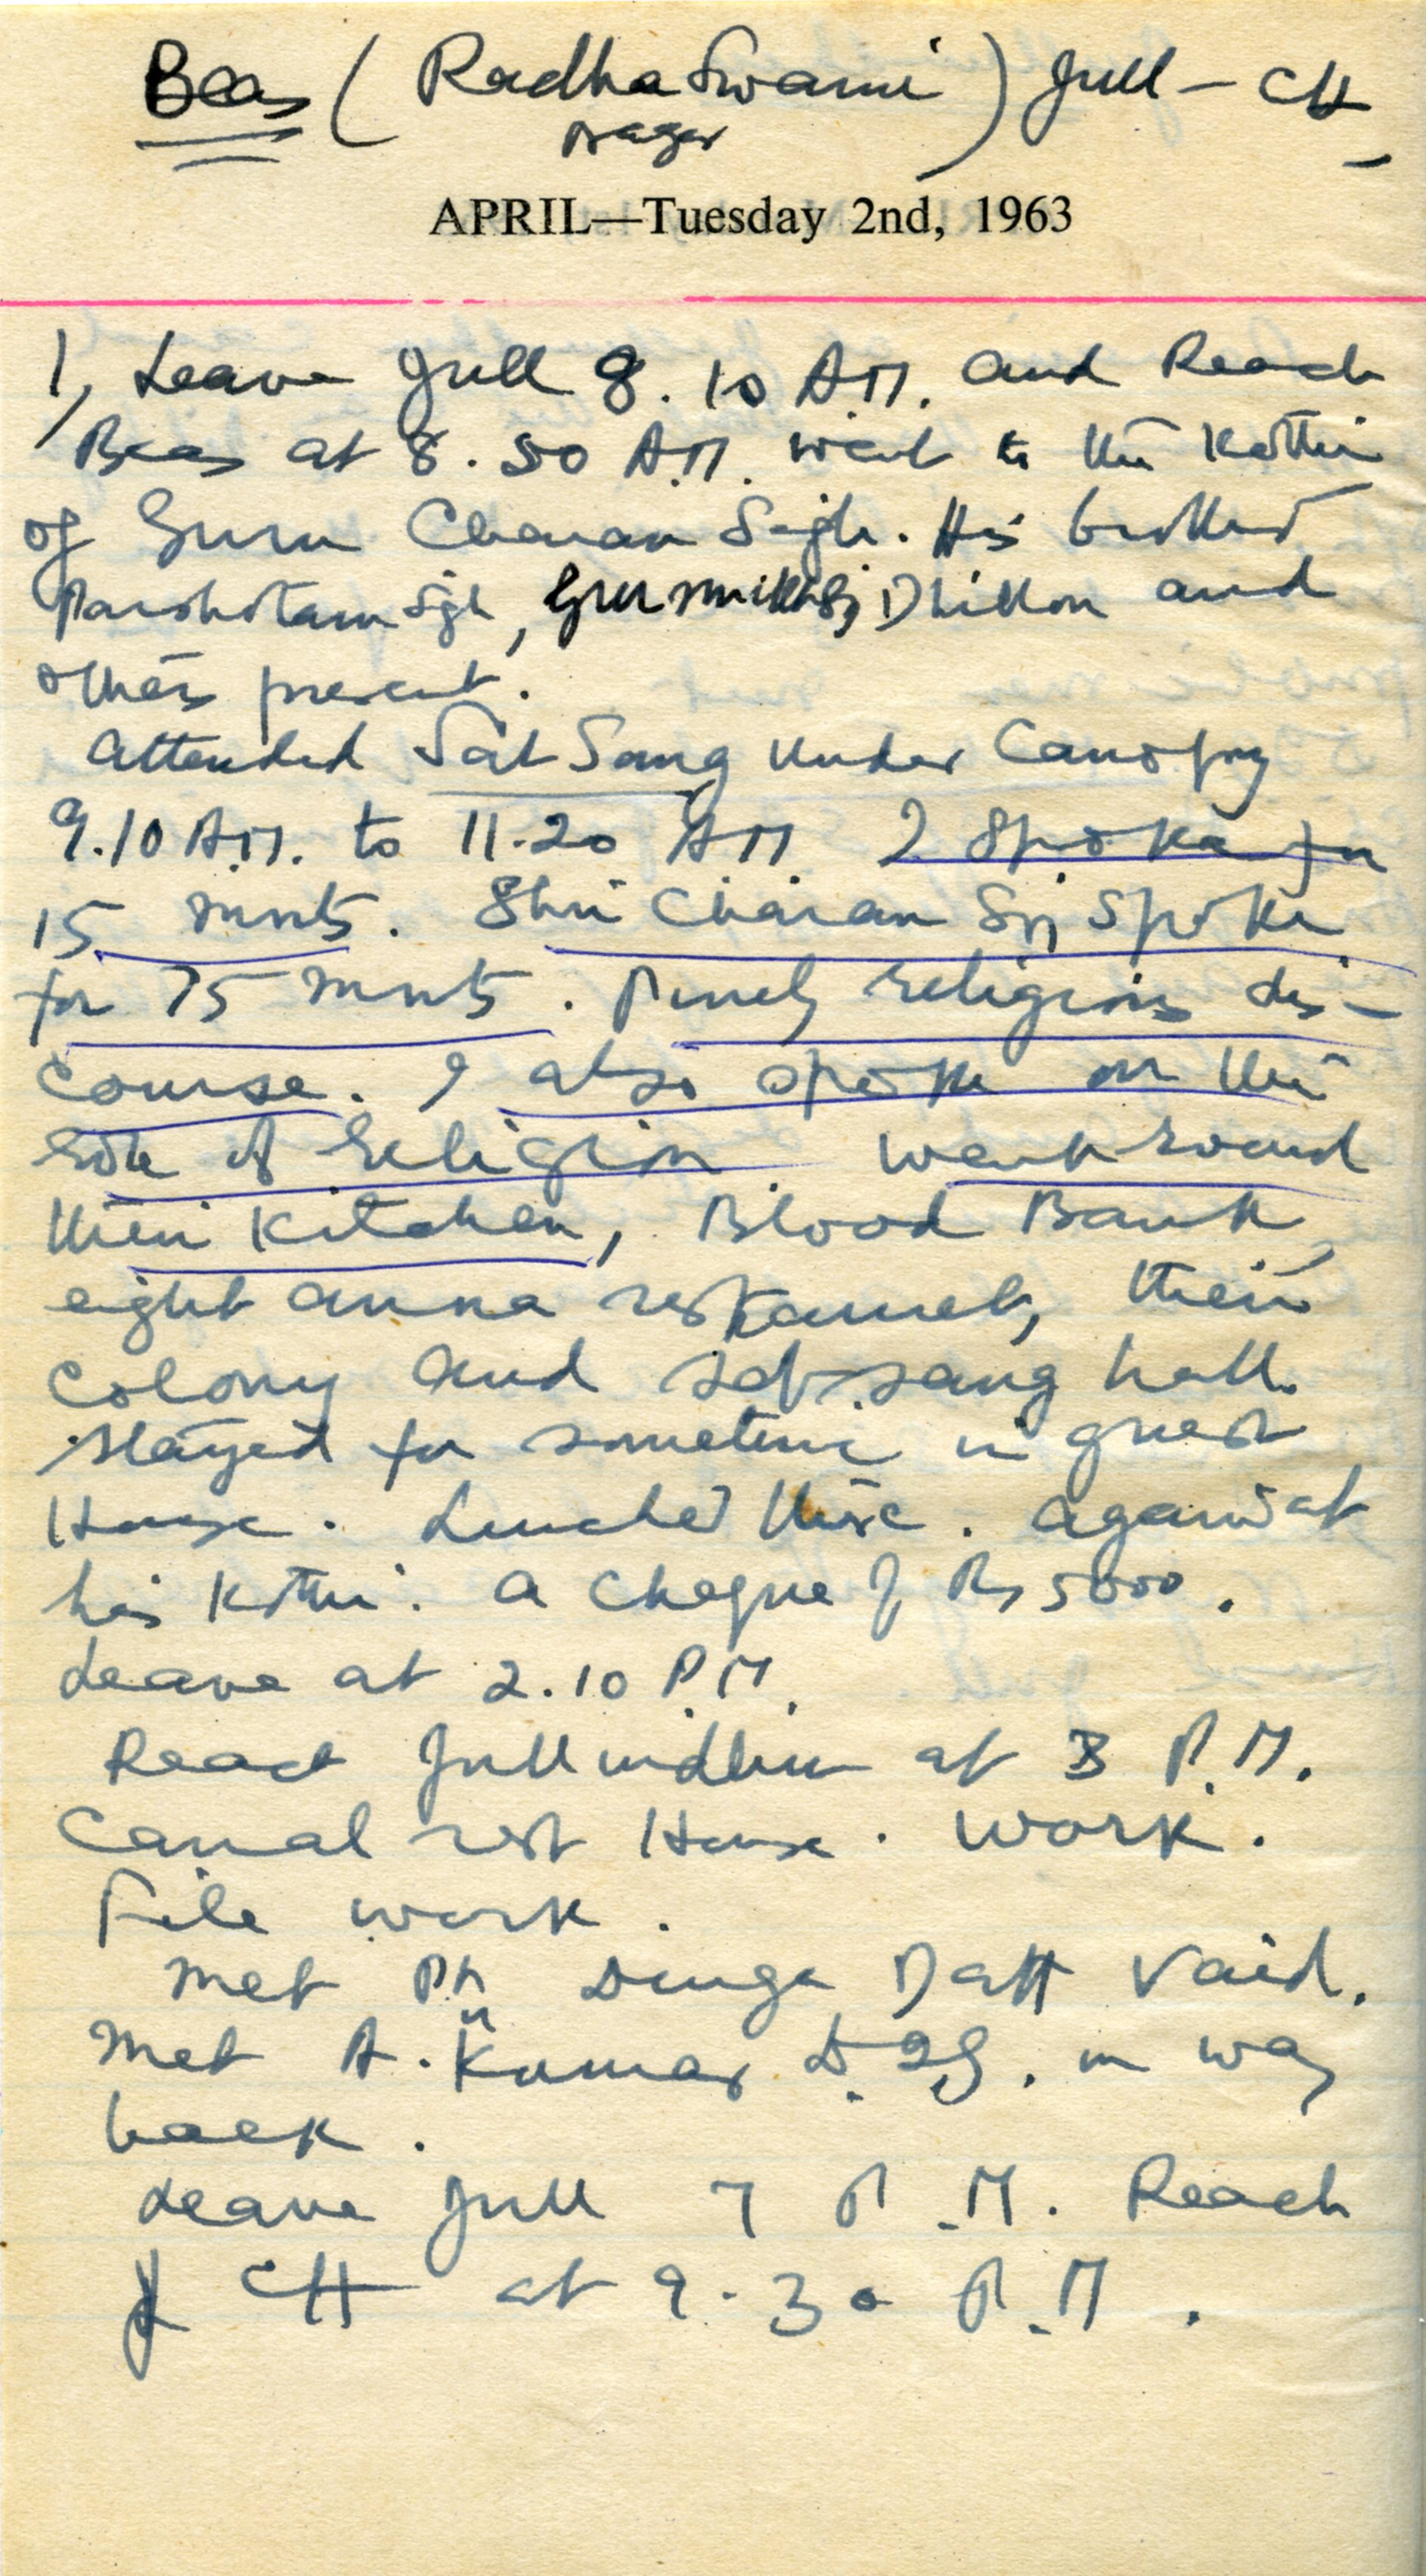 Beas (Radha Swami) Jull - CH
Nagar
APRIL—Tuesday 2nd, 1963
1, Leave Jull 8.10 A.M. and Reach
Beas at 8.50 A.M. went to the Kothi
of Guru Charan Singh. His brother
Parshotam Sgh, Gurmukh Sg Dhillon and
others present.
Attended Sat Sang under Canopy
9.10 A.M. to 11.20 AM I spoke for
15 mnts. Shri Charan Sg spoke
for 75 mnts. Purely religious dis-
course. I also spoke on the
role of religion. Went round
their Kitchen, Blood Bank,
eight anna restaurant, their
colony and sat-sang hall.
stayed for sometime in guest
House. Lunched there. Again at
his Kothi. a cheque of Rs 5000.
Leave at 2.10 P.M.
Reach Jullundhur at 3 P.M.
Canal rest House. Work.
File work.
Met Pt Durga Datt Vaid.
Met A. Kumar D.I.G. on way
back.
Leave Jull 7 P.M. Reach
CH at 9.30 P.M.